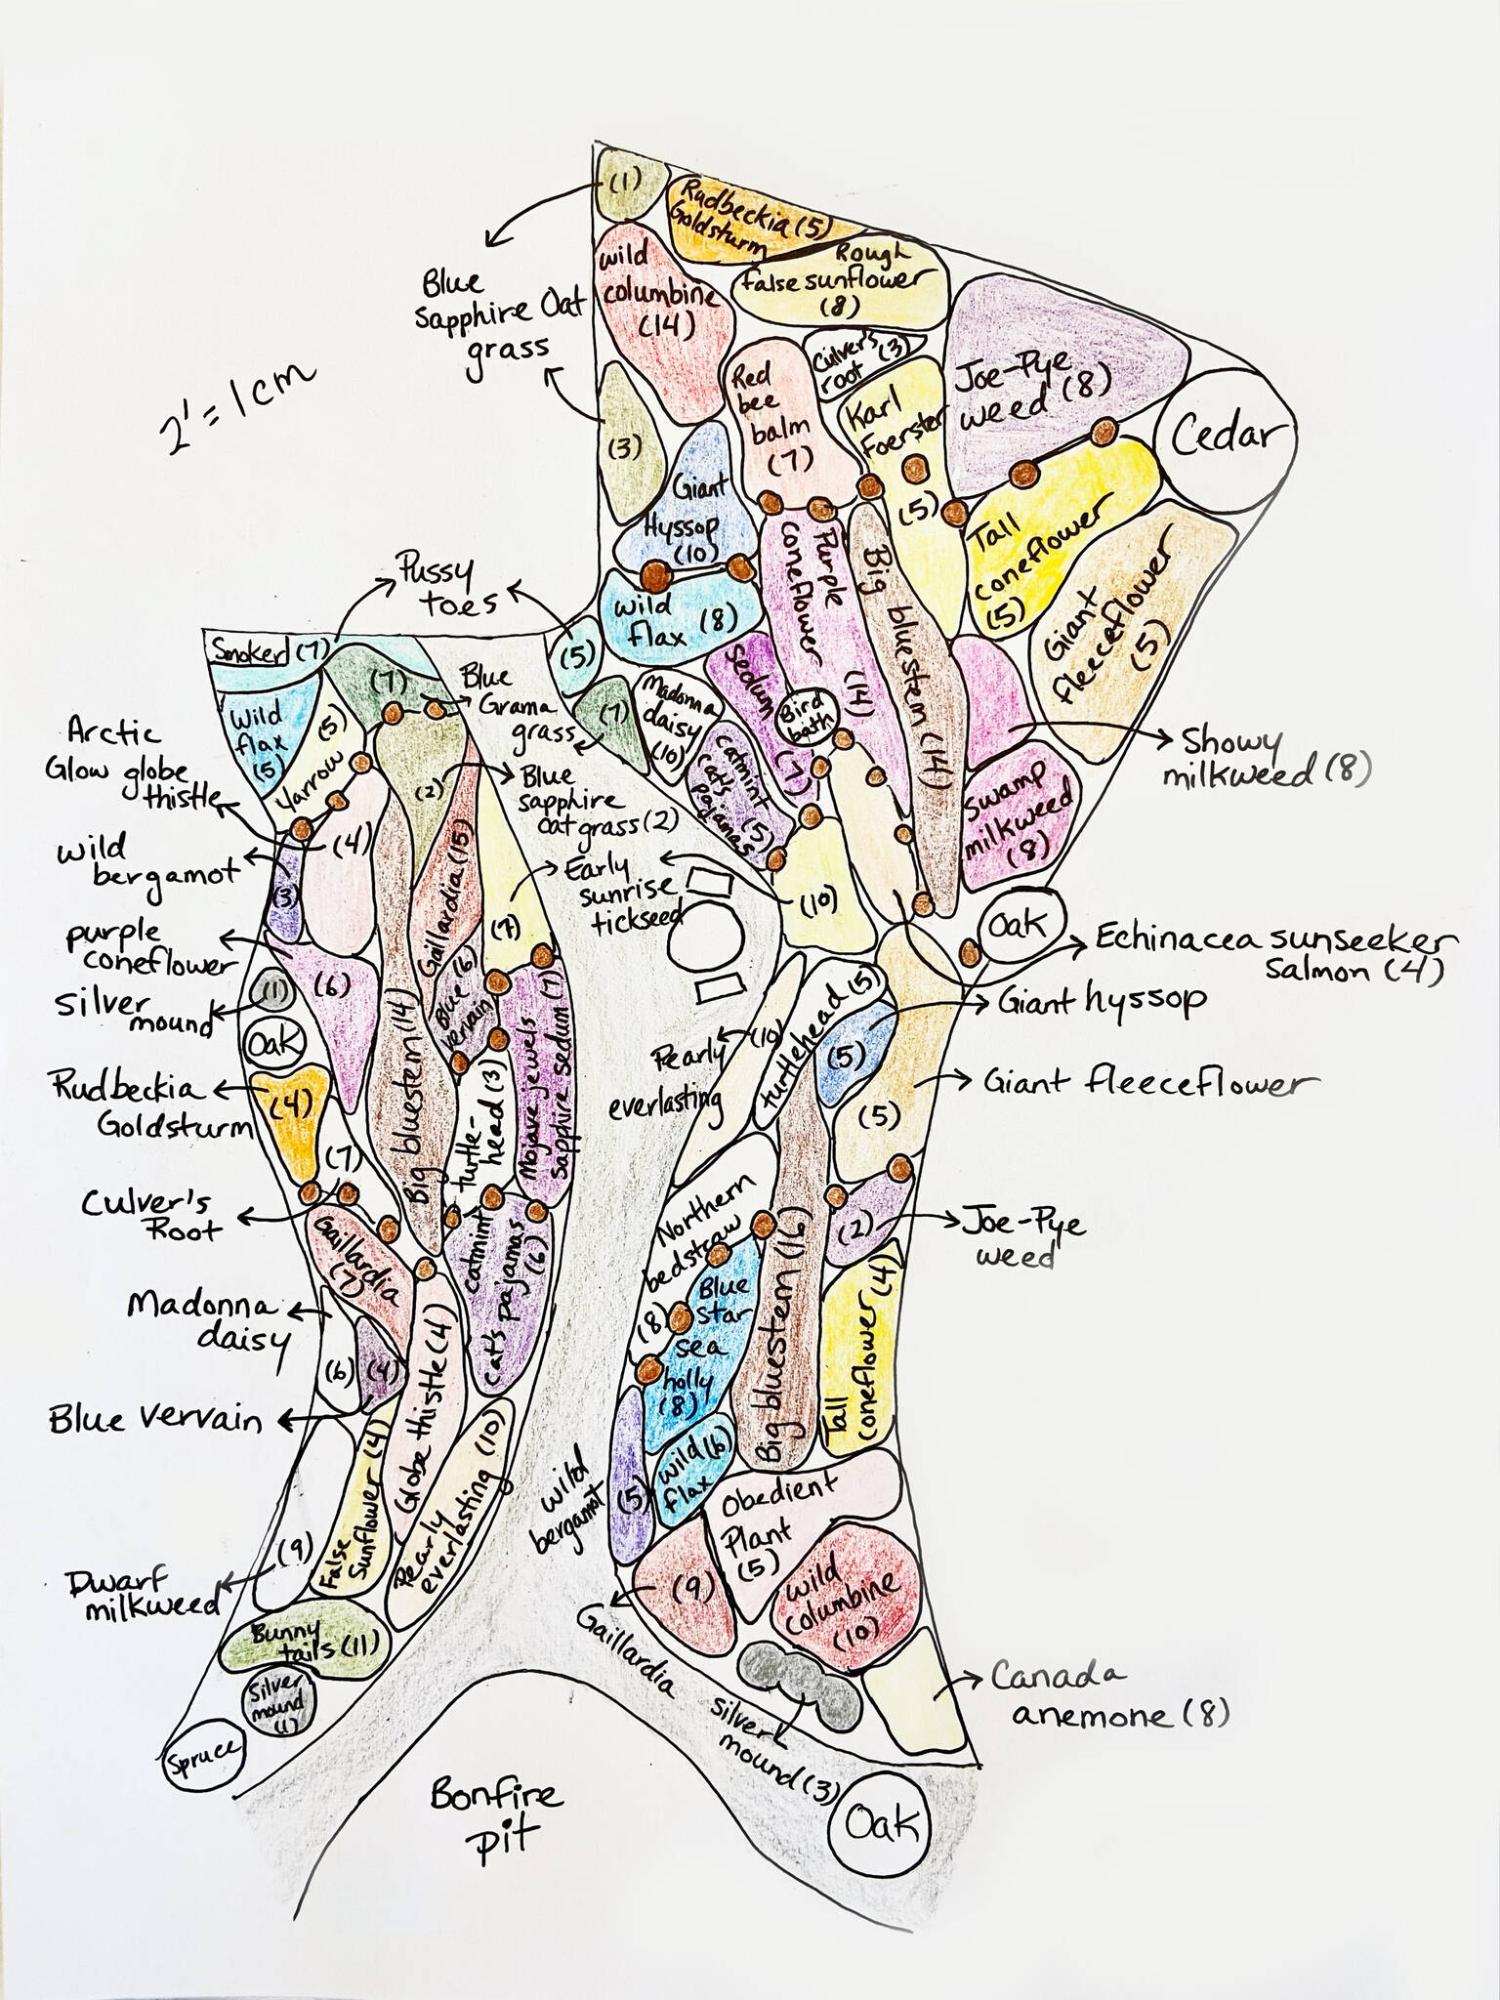 (1)
Rudbeckia (5)
Goldsturm
Blue
Sapphire Oat
grass
wild
columbine
(14)
Rough
false sunflower
(8)
Culver's
root (3)
Joe-Pye
weed (8)
2' = 1cm
Red
bee
balm
(7)
Karl
Foerster
(5)
Cedar
(3)
Giant
Hyssop
(10)
Tall
coneflower
(5)
Giant
fleeceflower
(5)
Pussy
toes
wild
flax (8)
Purple
coneflower
(14)
Big bluestem (14)
Smoker (7)
(5)
(7)
Blue
Grama
grass
(7)
Madonna
daisy
(10)
Sedum
(7)
Bird
bath
Wild
flax
(5)
(5)
Yarrow
Arctic
Glow globe
thistle
(4)
(2)
Blue
sapphire
oat grass (2)
catmint
cat's
pajamas
(5)
Showy
milkweed (8)
Swamp
milkweed
(8)
wild
bergamot
(3)
Gaillardia (15)
Early
sunrise
tickseed
(7)
(10)
Oak
purple
coneflower
(6)
Echinacea sunseeker
Salmon (4)
silver
mound
(1)
Oak
Blue (6)
vervain
Mojave jewels
Sapphire sedum (7)
Pearly
everlasting
(10)
turtlehead (5)
Giant hyssop
(5)
Giant fleeceflower
(5)
Rudbeckia
Goldsturm
(4)
Big bluestem (14)
turtle-
head (3)
Culver's
Root
(7)
Northern
bedstraw
(8)
Joe-Pye
weed
(2)
Gaillardia
(7)
catmint
cat's pajamas
(6)
Blue
star
sea
holly
(8)
Big bluestem (16)
Tall
coneflower (4)
Madonna
daisy
(6)
(4)
Blue vervain
Globe thistle (4)
Pearly
everlasting (10)
False
Sunflower (4)
wild
bergamot
(5)
wild (6)
flax
Obedient
Plant
(5)
Dwarf
milkweed
(9)
Gaillardia
(9)
wild
columbine
(10)
Bunny
tails (11)
Silver
mound
(1)
Spruce
silver
mound (3)
Canada
anemone (8)
Bonfire
pit
Oak